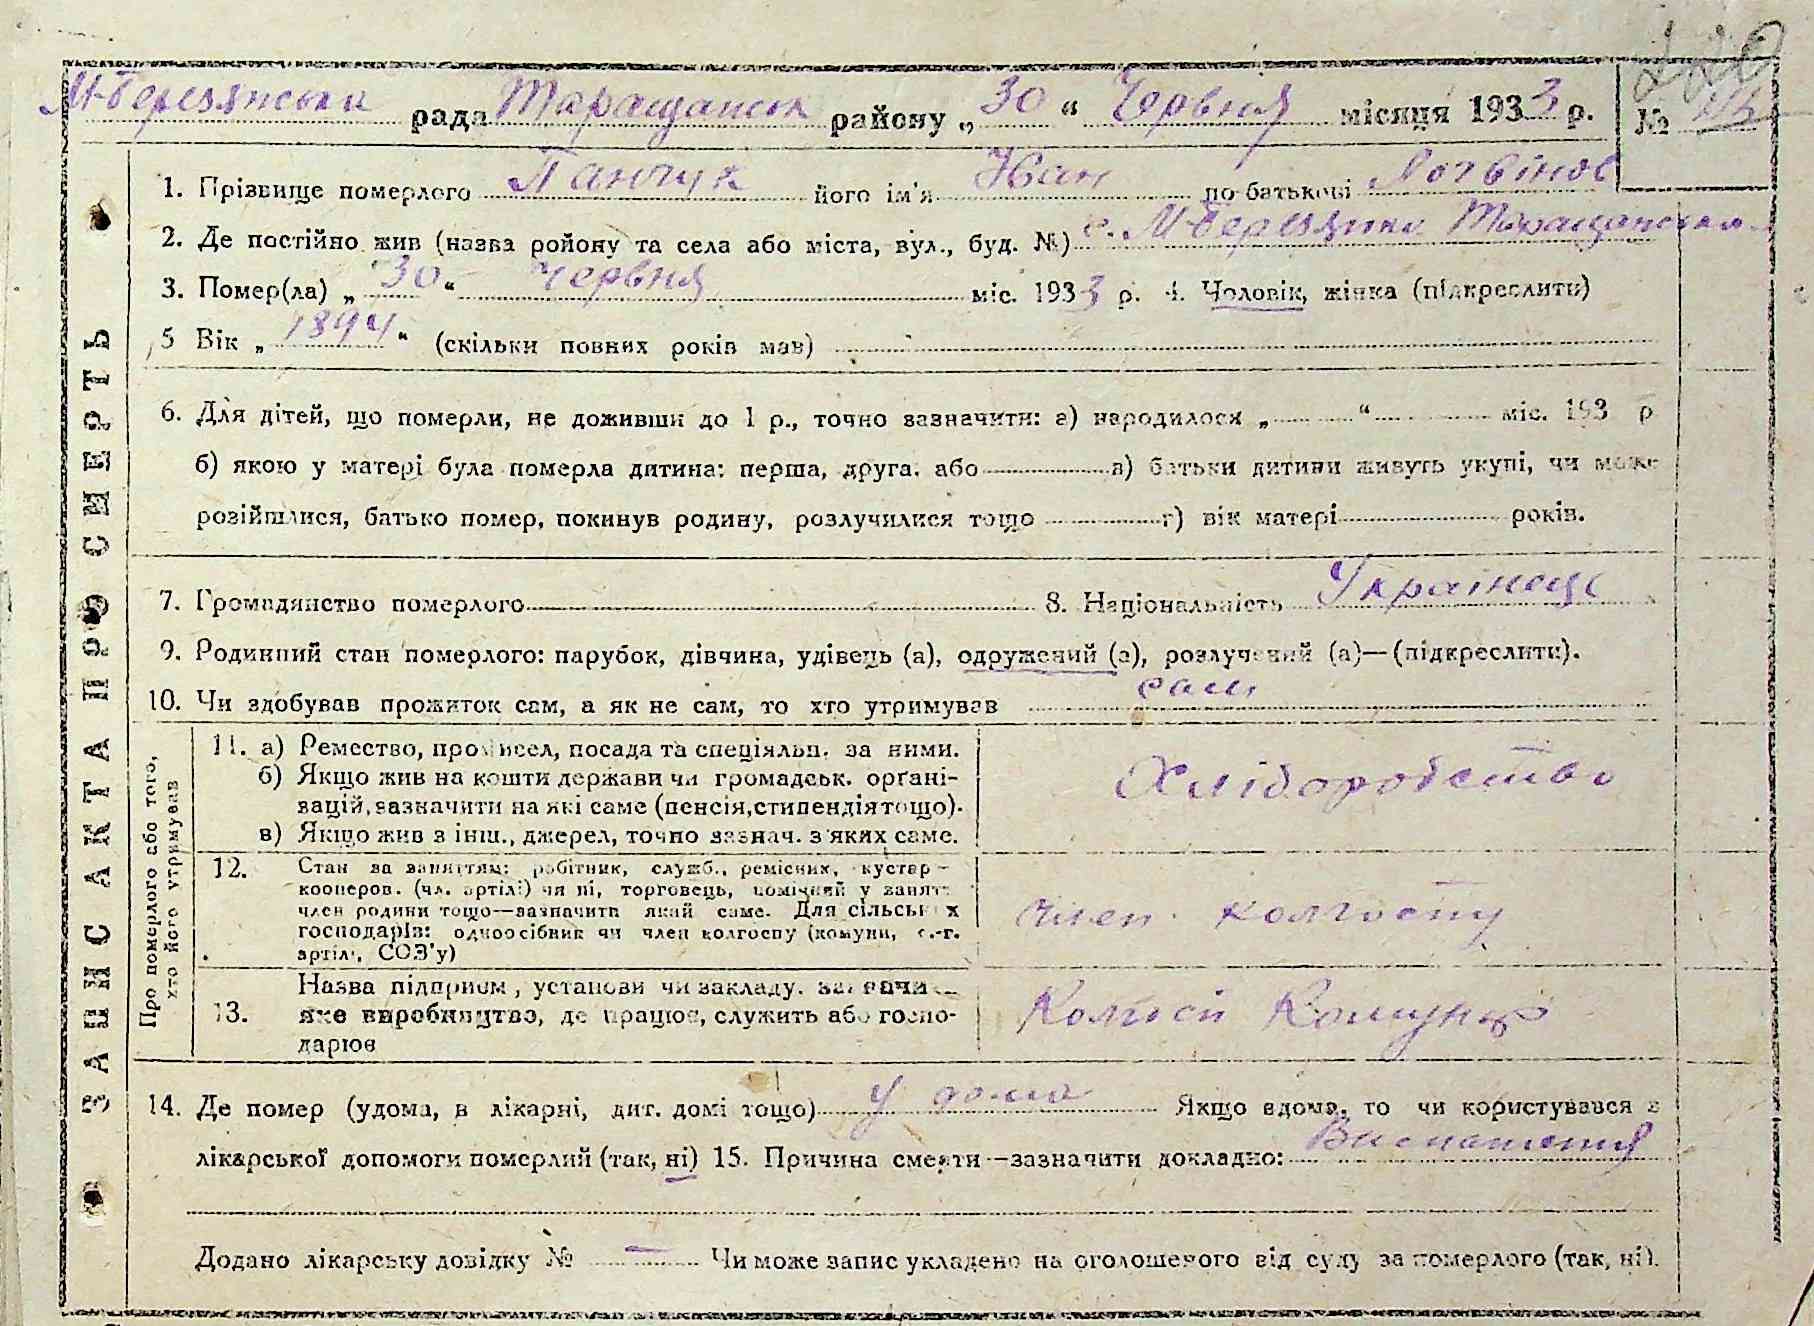 220
М-Березянська рада Таращанськ району „30“ Червня місяця 1933 р. №
ЗАПИС АКТА ПРО СМЕРТЬ
1. Прізвище померлого Панчук його ім'я Иван по-батькові Логвінов
2. Де постійно жив (назва ройону та села або міста, вул., буд. №) с. М-Березянка Таращанська
3. Помер(ла) „30“ червня міс. 1933 р. 4. Чоловік, жінка (підкреслити)
5 Вік „1894“ (скільки повних років мав)
6. Для дітей, що померли, не доживши до 1 р., точно зазначити: а) народилося „ “ міс. 193 р
б) якою у матері була померла дитина: перша, друга, або в) батьки дитини живуть укупі, чи може
розійшлися, батько помер, покинув родину, розлучилися тощо г) вік матері років.
7. Громадянство померлого 8. Національність Українець
9. Родинний стан померлого: парубок, дівчина, удівець (а), одружений (а), розлучений (а)—(підкреслити).
10. Чи здобував прожиток сам, а як не сам, то хто утримував сам
Про померлого або того,
хто його утримував
11. а) Ремество, промисел, посада та спеціяльн. за ними.
б) Якщо жив на кошти держави чи громадськ. орґані-
зацій, зазначити на які саме (пенсія, стипендія тощо).
в) Якщо жив з інш., джерел, точно зазнач. з яких саме.
Хліборобство
12. Стан за заняттям: робітник, служб., ремісник, кустар-
кооперов. (чл. артілі) чи ні, торговець, помічний у занятт.
член родини тощо—зазначити який саме. Для сільських
господарів: одноосібник чи член колгоспу (комуни, с.-г.
артілі, СОЗ'у)
член колгоспу
Назва підприєм, установи чи закладу, зазначи
13. яке виробництво, де працює, служить або госпо-
дарює
14. Де помер (удома, в лікарні, дит. домі тощо) у дома Якщо вдома, то чи користувався з
лікарської допомоги померлий (так, ні) 15. Причина смерти—зазначити докладно: Виснаження
Додано лікарську довідку № — Чи може запис укладено на оголошеного від суду за померлого (так, ні).